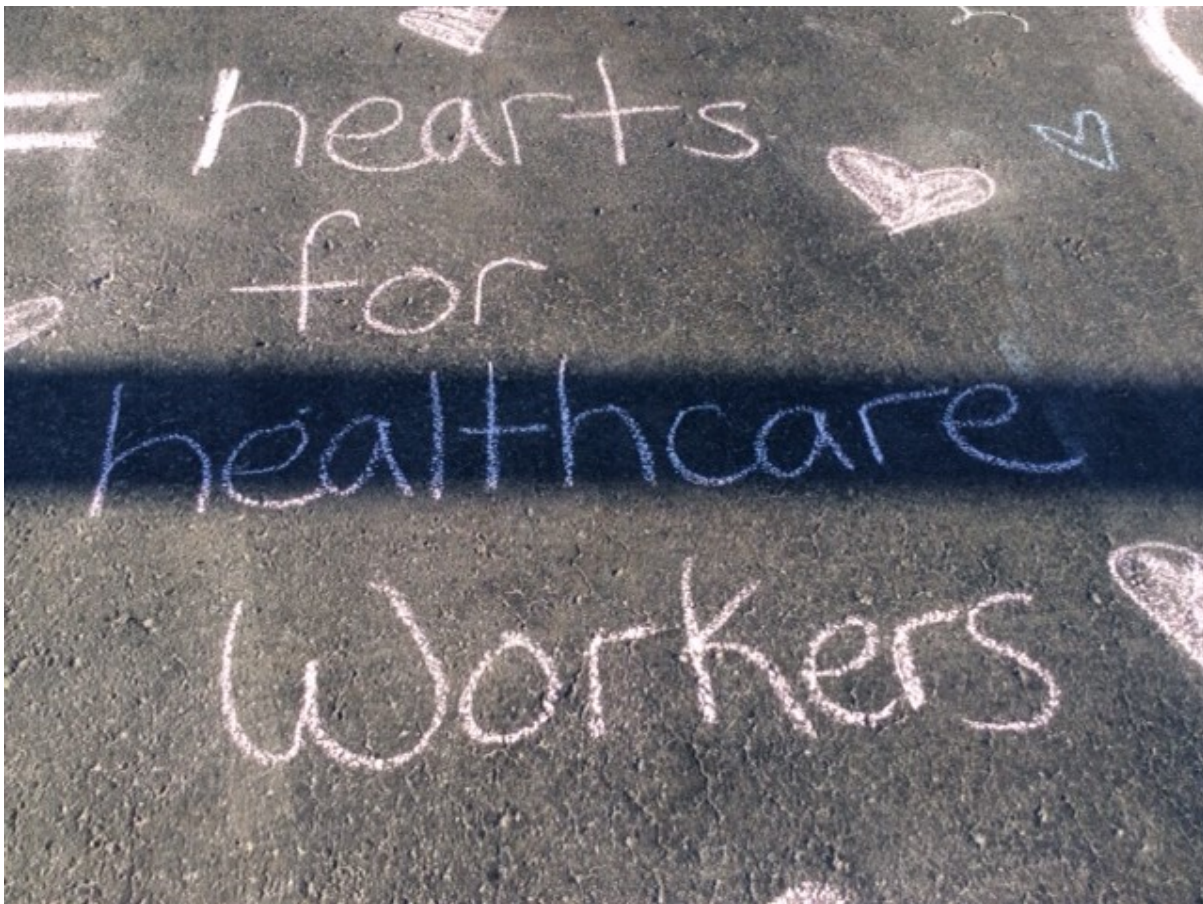 = hearts
for
healthcare
Workers